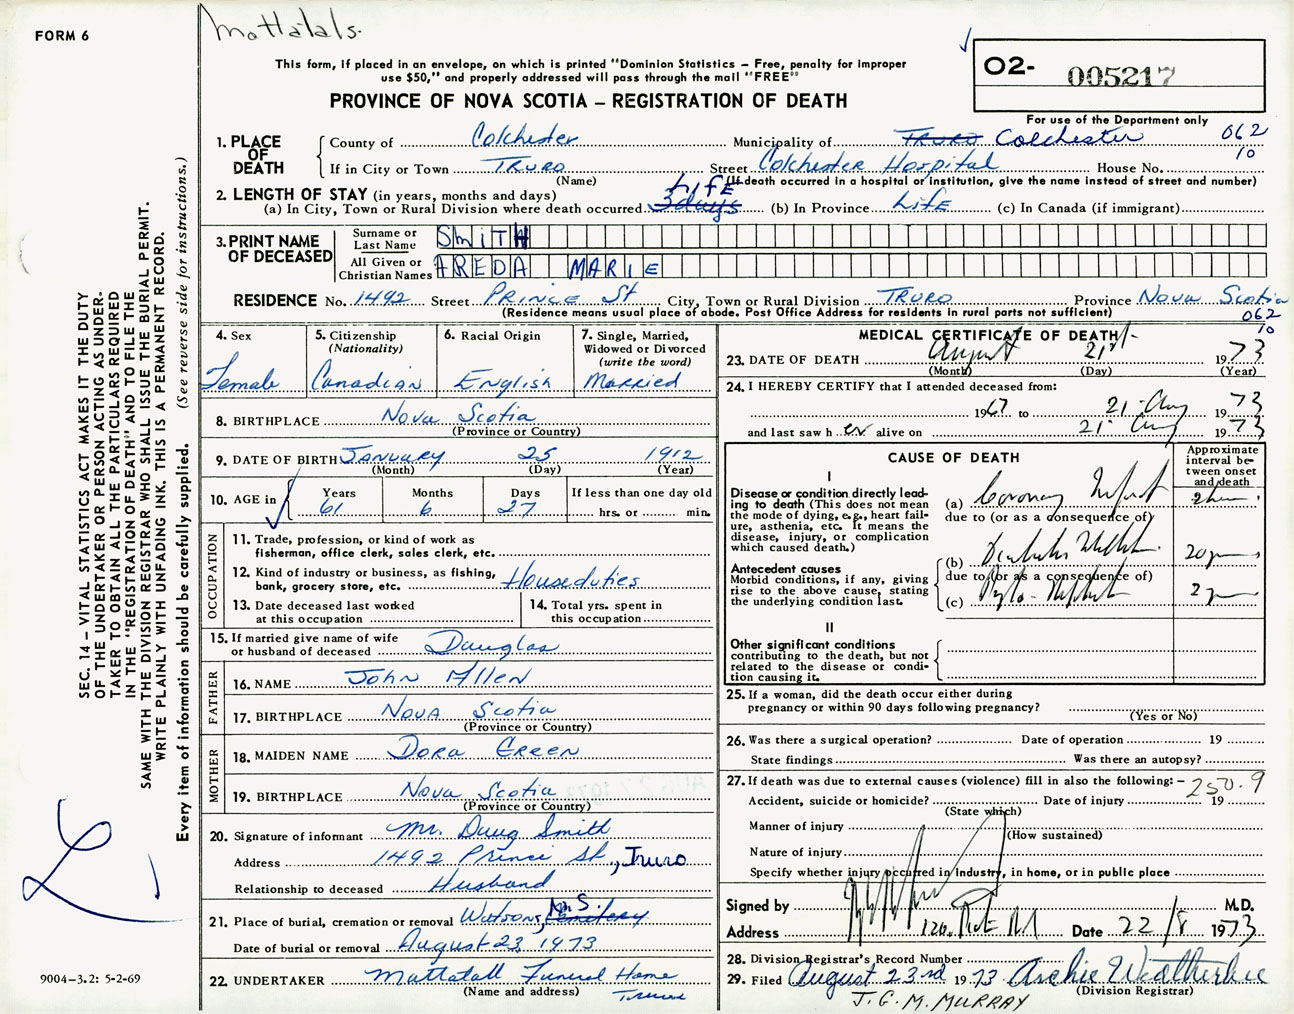 FORM 6
Mattatals.
This form, if placed in an envelope, on which is printed "Dominion Statistics – Free, penalty for improper
use $50," and properly addressed will pass through the mail "FREE"
PROVINCE OF NOVA SCOTIA – REGISTRATION OF DEATH
O2- 005217
For use of the Department only
1. PLACE OF DEATH County of Colchester Municipality of Truro Colchester 062
If in City or Town TRURO Street Colchester Hospital House No. 10
(Name) (If death occurred in a hospital or institution, give the name instead of street and number)
2. LENGTH OF STAY (in years, months and days) LIFE
(a) In City, Town or Rural Division where death occurred 3 days (b) In Province LIFE (c) In Canada (if immigrant)
3. PRINT NAME OF DECEASED
Surname or Last Name SMITH
All Given or Christian Names FREDA MARIE
RESIDENCE No. 1492 Street PRINCE St City, Town or Rural Division TRURO Province NOVA Scotia
(Residence means usual place of abode. Post Office Address for residents in rural parts not sufficient) 062
10
4. Sex
Female
5. Citizenship
(Nationality)
Canadian
6. Racial Origin
English
7. Single, Married,
Widowed or Divorced
(write the word)
Married
8. BIRTHPLACE Nova Scotia
(Province or Country)
9. DATE OF BIRTH JANUARY 25 1912
(Month) (Day) (Year)
10. AGE in Years Months Days If less than one day old
61 6 27 hrs. or min.
OCCUPATION
11. Trade, profession, or kind of work as
fisherman, office clerk, sales clerk, etc.
12. Kind of industry or business, as fishing,
bank, grocery store, etc. Houseduties
13. Date deceased last worked
at this occupation
14. Total yrs. spent in
this occupation
15. If married give name of wife
or husband of deceased Douglas
FATHER
16. NAME John Allen
17. BIRTHPLACE NOVA Scotia
(Province or Country)
MOTHER
18. MAIDEN NAME DORA GREEN
19. BIRTHPLACE Nova Scotia
(Province or Country)
AUG 27 1973
20. Signature of informant Mr. Doug Smith
Address 1492 Prince St., Truro
Relationship to deceased Husband
21. Place of burial, cremation or removal Watsons, N.S. Cemetery
Date of burial or removal August 23 1973
22. UNDERTAKER Mattatall Funeral Home
(Name and address) Truro
MEDICAL CERTIFICATE OF DEATH
23. DATE OF DEATH August 21st 1973
(Month) (Day) (Year)
24. I HEREBY CERTIFY that I attended deceased from:
1967 to 21-Aug 1973
and last saw her alive on 21 Aug 1973
CAUSE OF DEATH
Approximate
interval be-
tween onset
and death
I
Disease or condition directly lead-
ing to death (This does not
mean the mode of dying, e.g., heart fail-
ure, asthenia, etc. It means the
disease, injury, or complication
which caused death.)
(a) Coronary Infarct
due to (or as a consequence of)
(b) Diabetes Mellitus 20 yrs
Antecedent causes
Morbid conditions, if any, giving
rise to the above cause, stating
the underlying condition last.
due to (or as a consequence of)
(c) 2 yrs
II
Other significant conditions
contributing to the death, but not
related to the disease or condi-
tion causing it.
25. If a woman, did the death occur either during
pregnancy or within 90 days following pregnancy?
(Yes or No)
26. Was there a surgical operation? Date of operation 19
State findings Was there an autopsy?
27. If death was due to external causes (violence) fill in also the following: – 250.9
Accident, suicide or homicide? Date of injury 19
(State which)
Manner of injury
(How sustained)
Nature of injury
Specify whether injury occurred in Industry, in home, or in public place
Signed by M.D.
Address Date 22/8 1973
28. Division Registrar's Record Number
29. Filed August 23rd 1973 Archie Weatherbee
(Division Registrar)
J. G. M. MURRAY
SEC. 14 – VITAL STATISTICS ACT MAKES IT THE DUTY
OF THE UNDERTAKER OR PERSON ACTING AS UNDER-
TAKER TO OBTAIN ALL THE PARTICULARS REQUIRED
IN THE "REGISTRATION OF DEATH" AND TO FILE THE
SAME WITH THE DIVISION REGISTRAR WHO SHALL ISSUE THE BURIAL PERMIT.
WRITE PLAINLY WITH UNFADING INK. THIS IS A PERMANENT RECORD.
Every item of information should be carefully supplied. (See reverse side for instructions.)
9004–3.2: 5-2-69